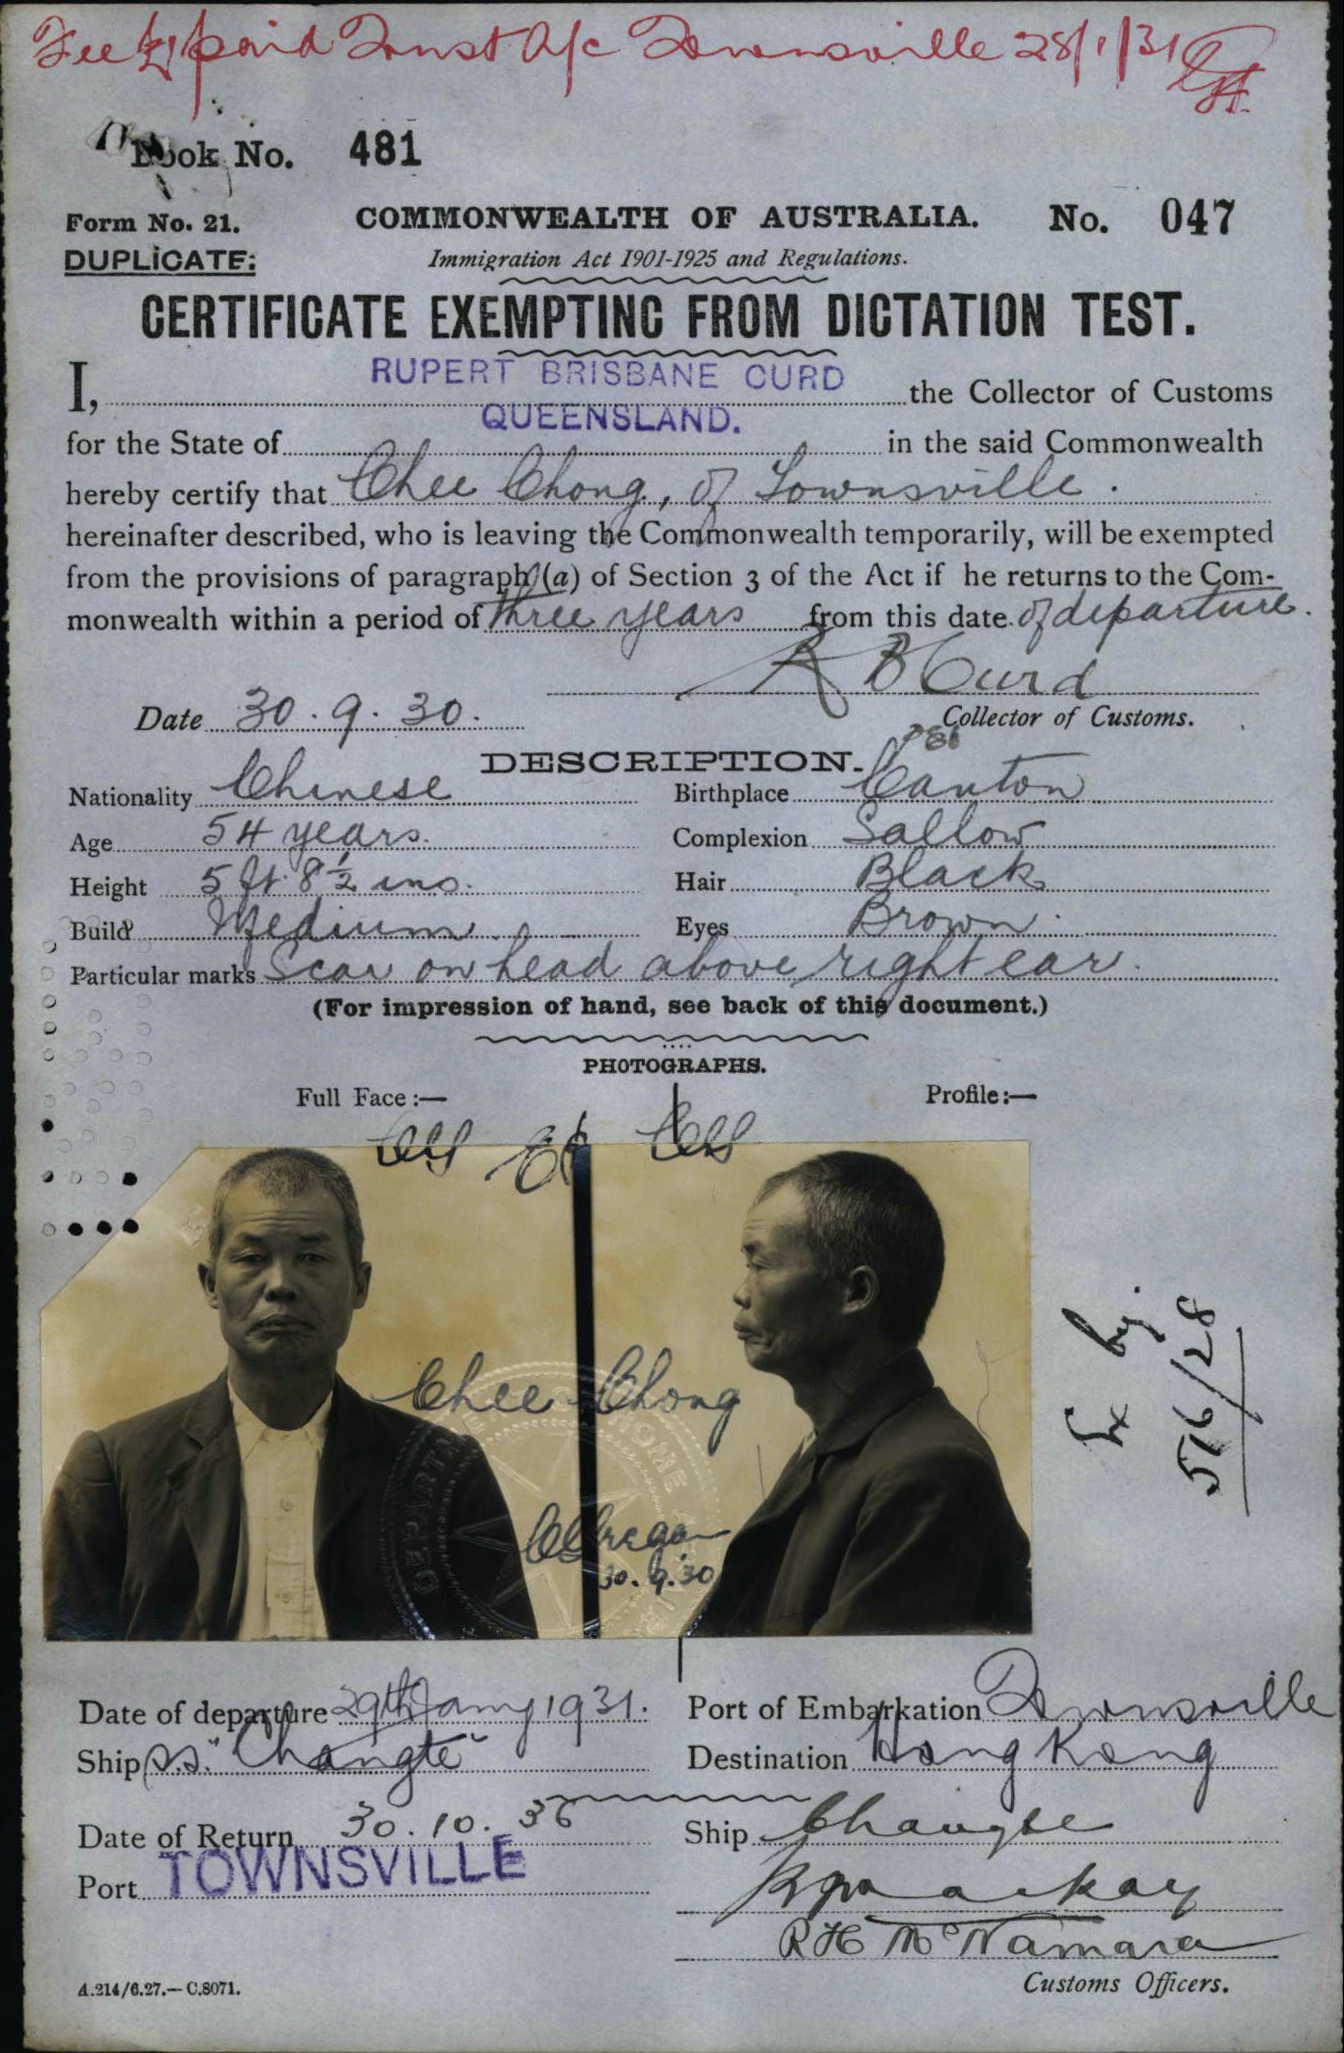 Fee £1 paid Trust A/c Townsville 28/1/31
Book No. 481
Form No. 21. COMMONWEALTH OF AUSTRALIA. No. 047
DUPLICATE: Immigration Act 1901-1925 and Regulations.
CERTIFICATE EXEMPTING FROM DICTATION TEST.
I, RUPERT BRISBANE CURD the Collector of Customs
for the State of QUEENSLAND. in the said Commonwealth
hereby certify that Chee Chong, of Townsville.
hereinafter described, who is leaving the Commonwealth temporarily, will be exempted
from the provisions of paragraph (a) of Section 3 of the Act if he returns to the Com-
monwealth within a period of three years from this date of departure.
R B Curd
Date 30.9.30. Collector of Customs.
DESCRIPTION.
Nationality Chinese Birthplace Canton
Age 54 years. Complexion Sallow
Height 5 ft 8½ ins. Hair Black
Build Medium Eyes Brown.
Particular marks Scar on head above right ear.
(For impression of hand, see back of this document.)
PHOTOGRAPHS.
Full Face:— Profile:—
Chee Chong
30.9.30
516/28
Date of departure 29th Jany 1931. Port of Embarkation Townsville
Ship s.s. "Changte" Destination Hong Kong
Date of Return 30.10.36 Ship Changte
Port TOWNSVILLE
R H McNamara
A.214/6.27.—C.8071. Customs Officers.